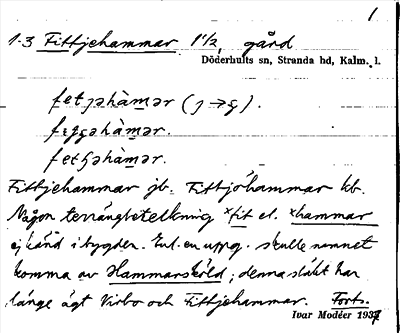 1
1-3 Fittjehammar 1 1/2, gård
Döderhults sn, Stranda hd, Kalm. l.
Fittjehammar jb. Fittjöhammar kb.
Någon terrängbeteckning ˣfit el. ˣhammar
ej känd i bygden. Enl. en uppg. skulle namnet
komma av Hammarsköld; denna släkt har
länge ägt Virbo och Fittjehammar. Forts.
Ivar Modéer 1937